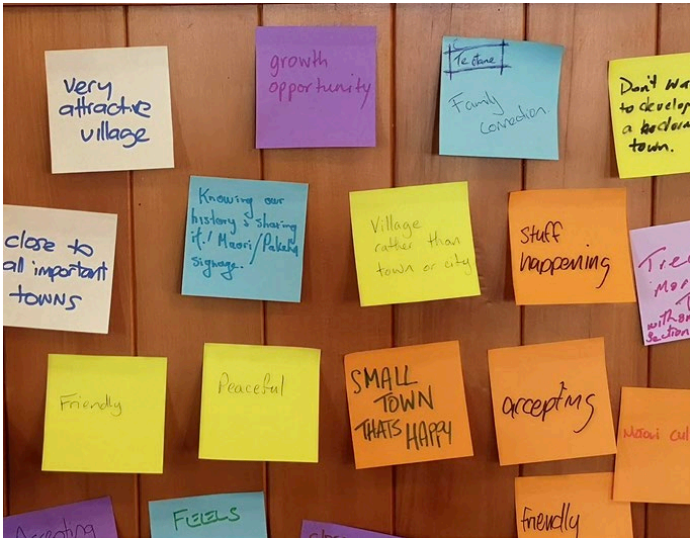 very
attractive
village
growth
opportunity
Te Tāone
Family
connection.
Don't
to develop
a
town.
close to
all important
TOWNS
Knowing our
history & sharing
it! Maori/Pakeha
signage.
Village
rather than
town or city
Stuff
happening
Friendly
Peaceful
SMALL
TOWN
THATS HAPPY
accepting
Maori cul
Accepting
FEELS
friendly